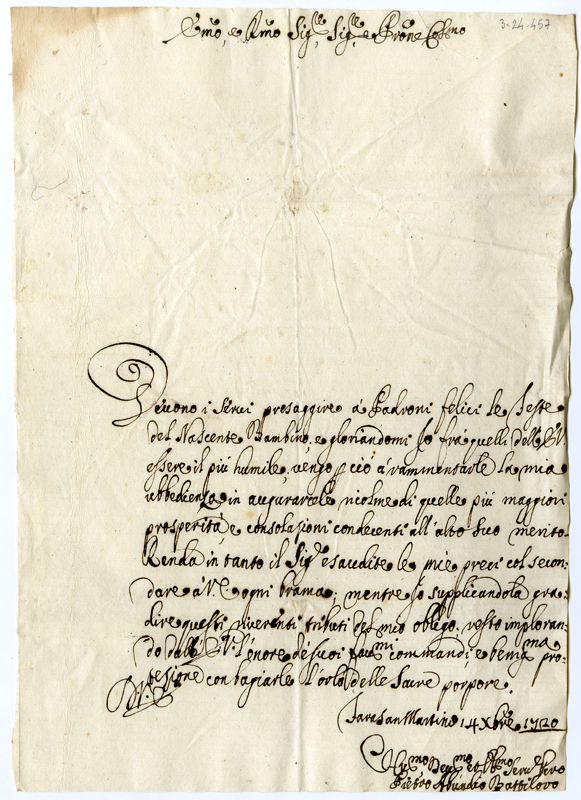 3-24-457
Em̃o, e Rm̃o Sig.re Sig.re e Pron̄e Col.mo
Devono i servi presaggire à Padroni felici le Feste
del Nascente Bambino, e gloriandomi Io frà quelli dell' E.V.
essere il più humile, vengo p ciò à rammentarle la mia
ubbedienza in augurarcele ricolme di quelle più maggiori
prosperità, e consolazioni condecenti all' alto suo merito.
Renda in tanto il Sig.re esaudite le mie preci col secon-
dare à V.E. ogni brama; mentre Io supplicandola gra-
dire questi riverenti tributi del mio obligo, resto imploran-
do dall' E.V. l'onore de suoi com̄andi, e benig.ma pro-
tezione con bagiarle l'orlo delle Sacre porpore.
D.V.E.
Fara San Martino 14 Xbre 1720
Hu.mo Dev.mo et Serv.e Vero
Pietro Battilovo